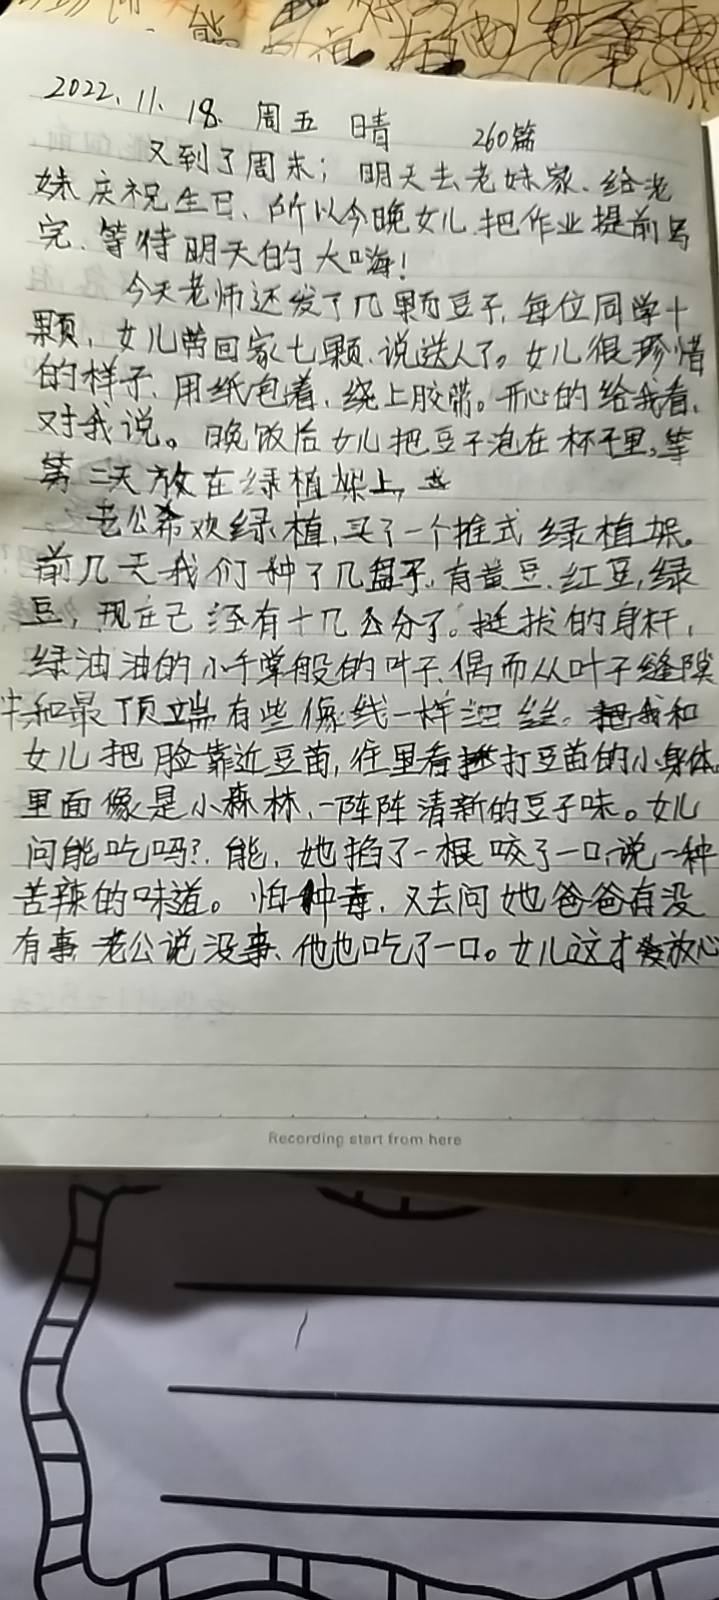 2022.11.18. 周五 晴 260篇
又到了周末；明天去老妹家、给老
妹庆祝生日、所以今晚女儿把作业提前写
完、等待明天的大嗨！
今天老师还发了几颗豆子，每位同学十
颗，女儿带回家七颗、说送人了。女儿很珍惜
的样子、用纸包着、绕上胶带。开心的给我看，
对我说。晚饭后女儿把豆子泡在杯子里，等
第二天放在绿植架上，
老公喜欢绿植，买了一个推式绿植架。
前几天我们种了几盘子，有黄豆、红豆，绿
豆，现在已经有十几公分了。挺拔的身杆，
绿油油的小手掌般的叶子、偶而从叶子缝隙
和最顶端有些像线一样细丝。我和
女儿把脸靠近豆苗，往里看打豆苗的小身体
里面像是小森林，一阵阵清新的豆子味。女儿
问能吃吗？能，她掐了一根咬了一口，说一种
苦辣的味道。怕中毒，又去问她爸爸有没
有事 老公说没事、他也吃了一口。女儿这才放心
Recording start from here